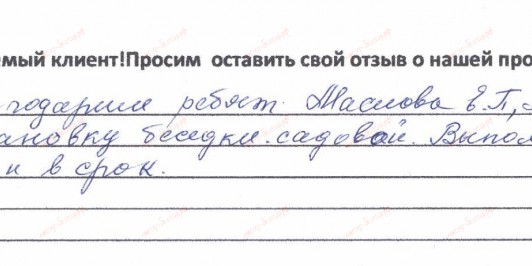 емый клиент!Просим оставить свой отзыв о нашей про
годарим ребят Маслова Е.П,
ановку беседки садовой. Выпол
и в срок.